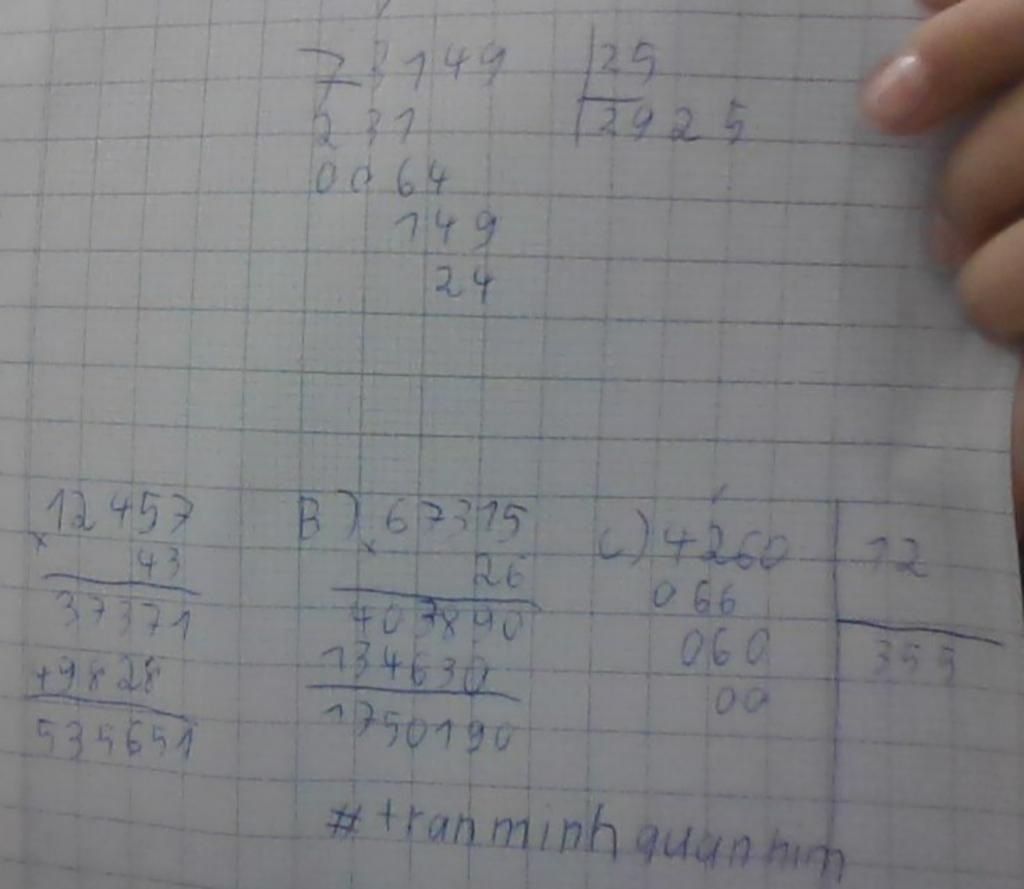 73149 25
231 2925
0064
149
24
12457
x 43
37371
49828
535651
B) 67315
x 26
403890
134630
1750190
C) 4260 12
066 355
060
00
# tranminhquan